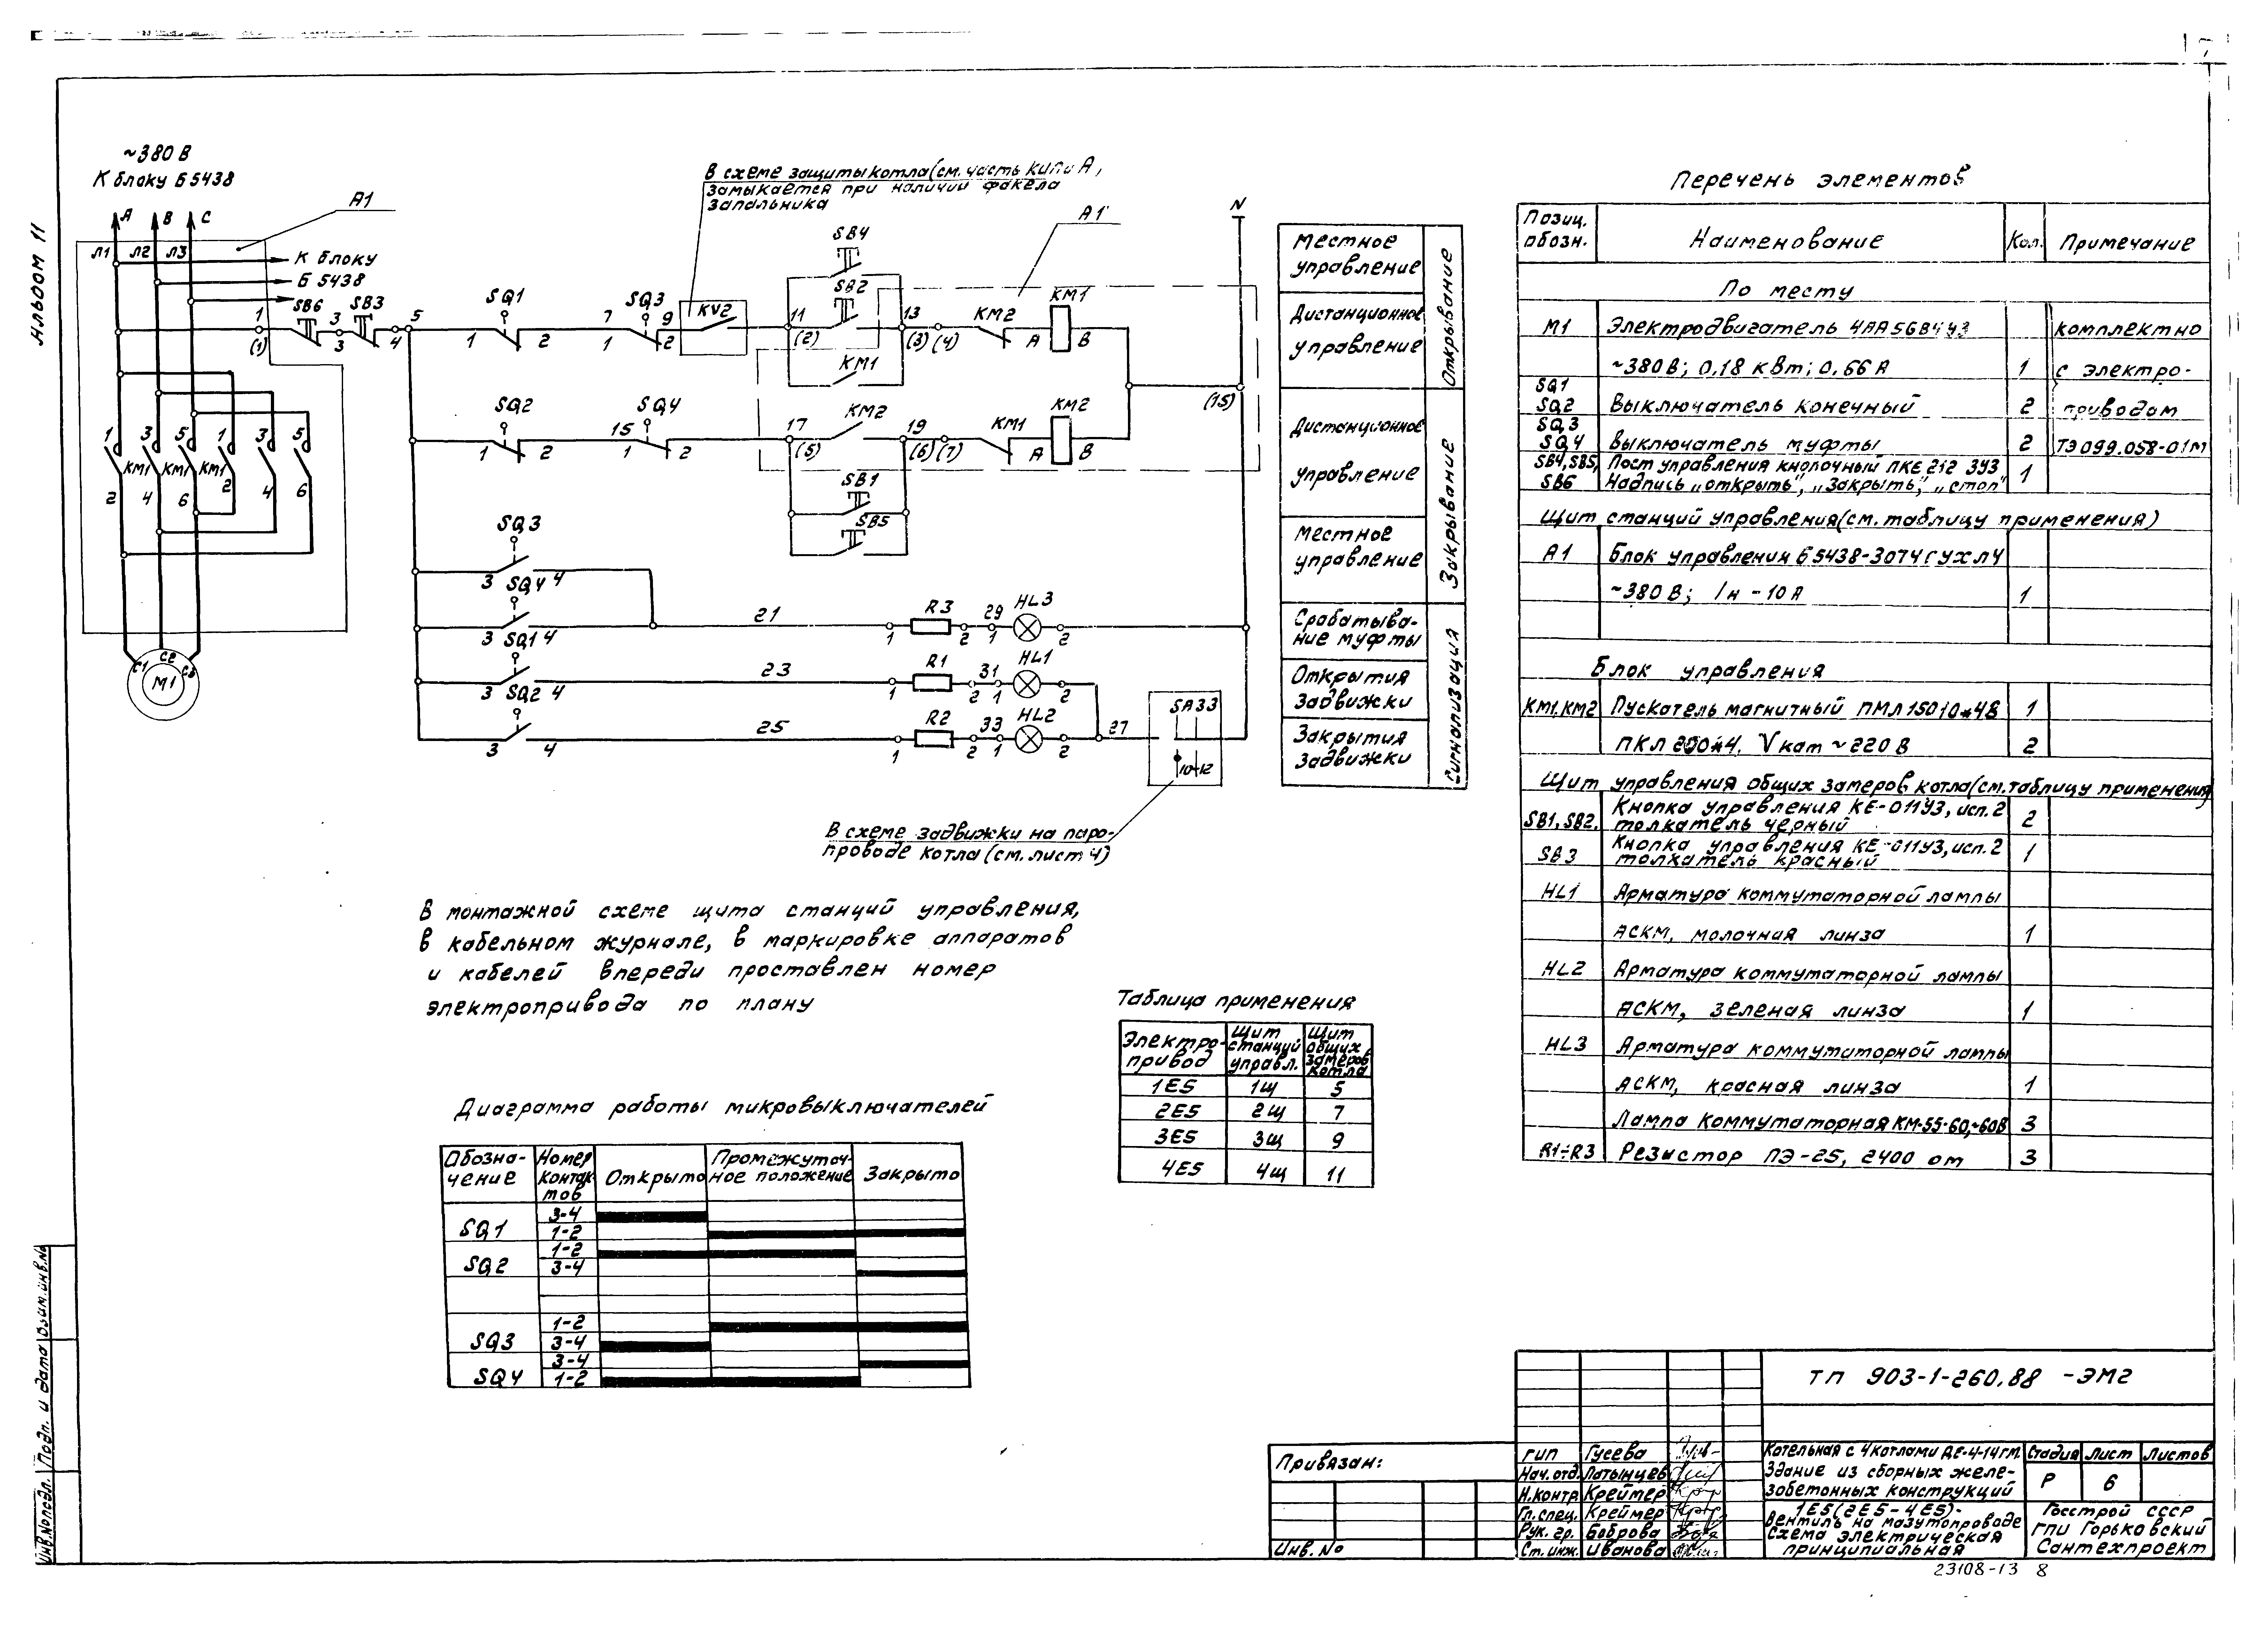 Альбом 11
~380 В
К блоку Б5438
А В С
А1
Л1 Л2 Л3
К блоку
Б 5438
В схеме защиты котла (см. часть КИПиА,
замыкается при наличии факела
запальника
А1
N
SB6 SB3
1 (1) 3 3 4 5
SQ1 1 2
SQ3 7 9 1 2
KV2
SB4
SB2
11 (2) 13 (3) (4)
KM1
KM2 А KM1 В
SQ2 1 2
SQ4 15 1 2
17 (5) KM2 19 (6) (7)
KM1 А KM2 В
(15)
SB1
SB5
1 3 5 1 3 5
KM1 KM1 KM1
2 4 6 2 4 6
C1 C2 C3
M1
SQ3
3 4
SQ4
3 4 21 1 R3 2 29 1 HL3 2
SQ1
3 4 23 1 R1 2 31 1 HL1 2
SQ2
3 4 25 1 R2 2 33 1 HL2 2 27
SA33
10-12
В схеме задвижки на паро-
проводе котла (см. лист 4)
Местное
управление
Дистанционное
управление
Открывание
Дистанционное
управление
Местное
управление
Закрывание
Срабатыва-
ние муфты
Открытия
задвижки
Закрытия
задвижки
Сигнализация
В монтажной схеме щита станций управления,
в кабельном журнале, в маркировке аппаратов
и кабелей впереди проставлен номер
электропривода по плану
Таблица применения
Электро-
привод
Щит
станций
управл.
Щит
общих
замеров
котла
1Е5 1Щ 5
2Е5 2Щ 7
3Е5 3Щ 9
4Е5 4Щ 11
Диаграмма работы микровыключателей
Обозна-
чение
Номер
контак
тов
Открыто
Промежуточ-
ное положение
Закрыто
SQ1 3-4
1-2
SQ2 1-2
3-4
SQ3 1-2
3-4
SQ4 3-4
1-2
Перечень элементов
Позиц.
обозн.
Наименование Кол. Примечание
По месту
М1 Электродвигатель 4АА56В4У3 комплектно
~380 В; 0,18 кВт; 0,66 А 1 с электро-
SQ1
SQ2 Выключатель конечный 2 приводом
SQ3
SQ4 Выключатель муфты 2 ТЭ099.058-01М
SB4, SB5,
SB6
Пост управления кнопочный ПКЕ 212 3У3
Надпись „открыть", „Закрыть", „стоп" 1
Щит станций управления (см. таблицу применения)
А1 Блок управления Б5438-3074ГУХЛ4
~380 В; Iн-10 А 1
Блок управления
КМ1, КМ2 Пускатель магнитный ПМЛ15010*4В 1
Vкат ~220 В 2
Щит управления общих замеров котла (см. таблицу применения)
SB1, SB2, Кнопка управления КЕ-011У3, исп. 2
толкатель черный 2
SB3 Кнопка управления КЕ-011У3, исп. 2
толкатель красный 1
HL1 Арматура коммутаторной лампы
АСКМ, молочная линза 1
HL2 Арматура коммутаторной лампы
АСКМ, зеленая линза 1
HL3 Арматура коммутаторной лампы
АСКМ, красная линза 1
Лампа коммутаторная КМ-55-60, ~60В 3
R1÷R3 Резистор ПЭ-25, 2400 ом 3
ТП 903-1-260.88 -ЭМ2
Привязан:
Инв. №
ГИП Гусева
Нач. отд. Латынцев
Н. контр. Креймер
Гл. спец. Креймер
Рук. гр. Боброва
Ст. инж. Иванова
Котельная с 4 котлами ДЕ-4-14ГМ.
Здание из сборных желе-
зобетонных конструкций
Стадия Лист Листов
Р 6
1Е5 (2Е5-4Е5)-
Вентиль на мазутопроводе
Схема электрическая
принципиальная
Госстрой СССР
ГПИ Горьковский
Сантехпроект
23108-13 8
Инв. № подл. Подп. и дата Взам. инв. №